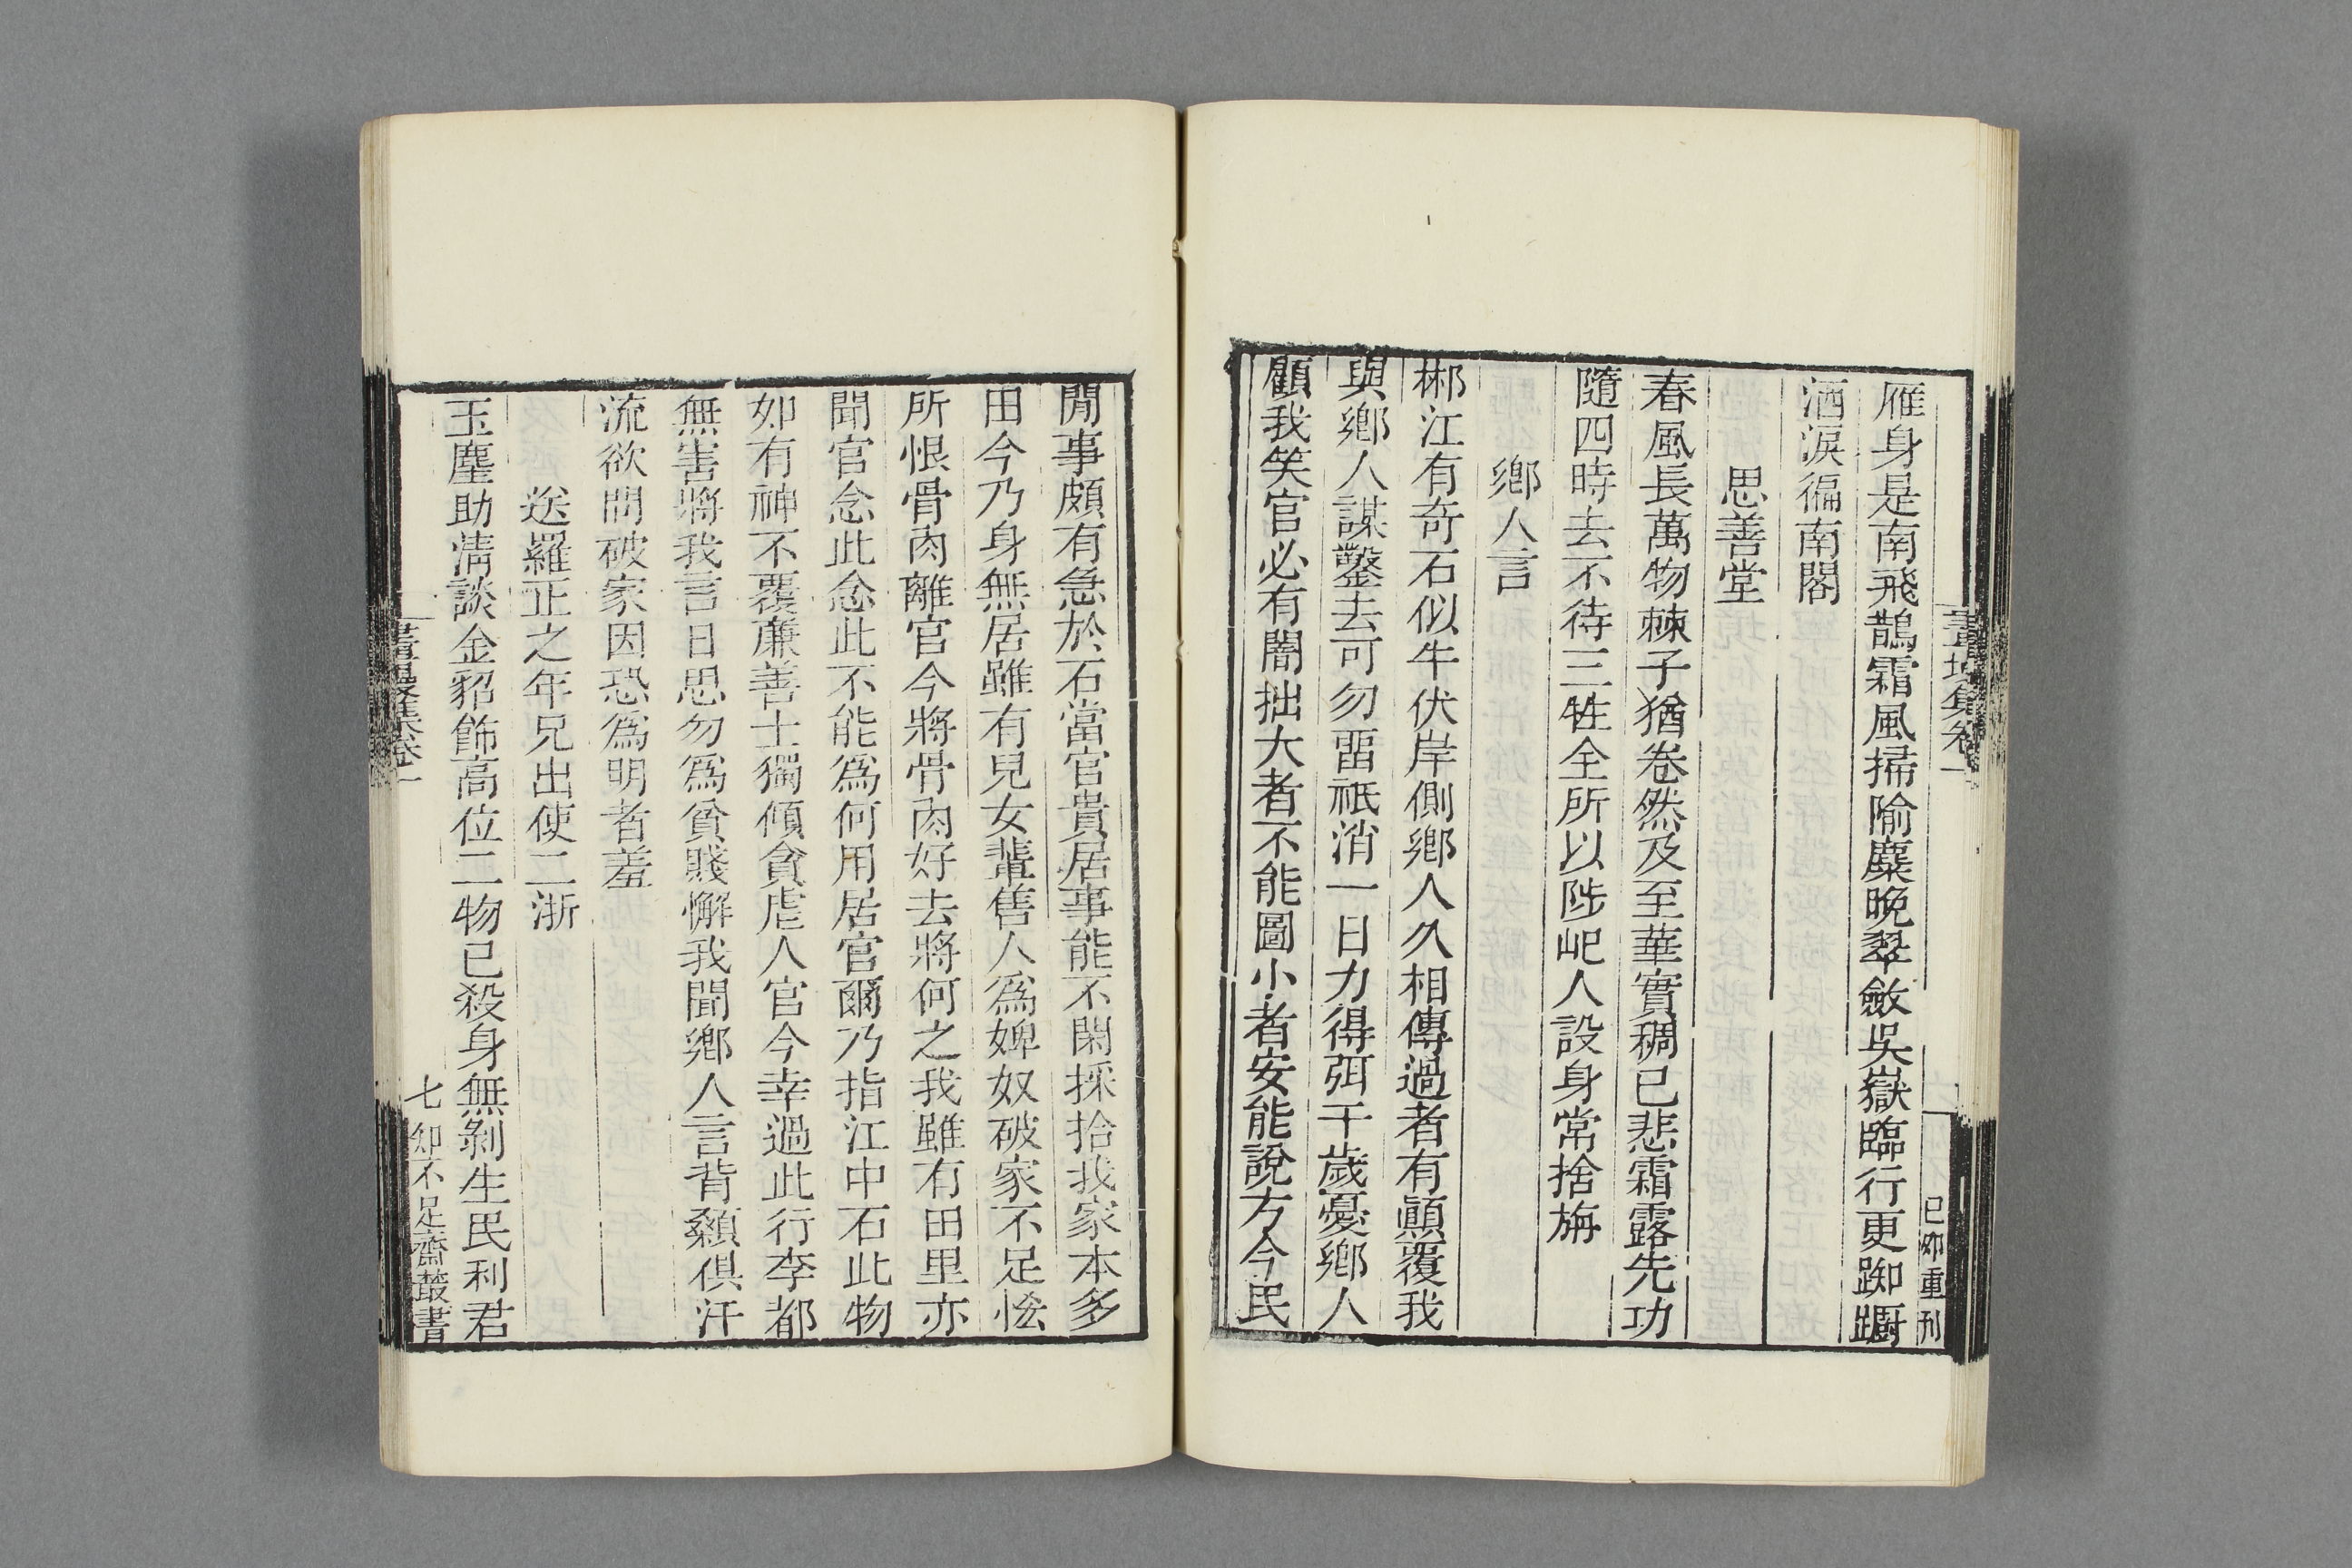 雁身是南飛鵲霜風掃隃麋晚翠斂吳嶽臨行更踟躕
洒淚徧南閣
思善堂
春風長萬物棘子猶卷然及至華實稠已悲霜露先功
隨四時去不待三牲全所以陟屺人設身常捨旃
鄉人言
郴江有奇石似牛伏岸側鄉人久相傳過者有顚覆我
與鄉人謀鑿去可勿畱祇消一日力得弭千歲憂鄉人
顧我笑官必有闇拙大者不能圖小者安能說方今民
閒事頗有急於石當官貴居事能不閑採拾我家本多
田今乃身無居雖有兒女輩售人爲婢奴破家不足恡
所恨骨肉離官今將骨肉好去將何之我雖有田里亦
聞官念此念此不能爲何用居官爾乃指江中石此物
如有神不覆廉善士獨傾貪虐人官今幸過此行李都
無害將我言日思勿爲貧賤懈我聞鄉人言背顙俱汗
流欲問破家因恐爲明者羞
送羅正之年兄出使二浙
玉麈助清談金貂飾高位二物已殺身無剝生民利君
畫墁集卷一
七
知不足齋叢書
畫墁集卷一
己卯重刊